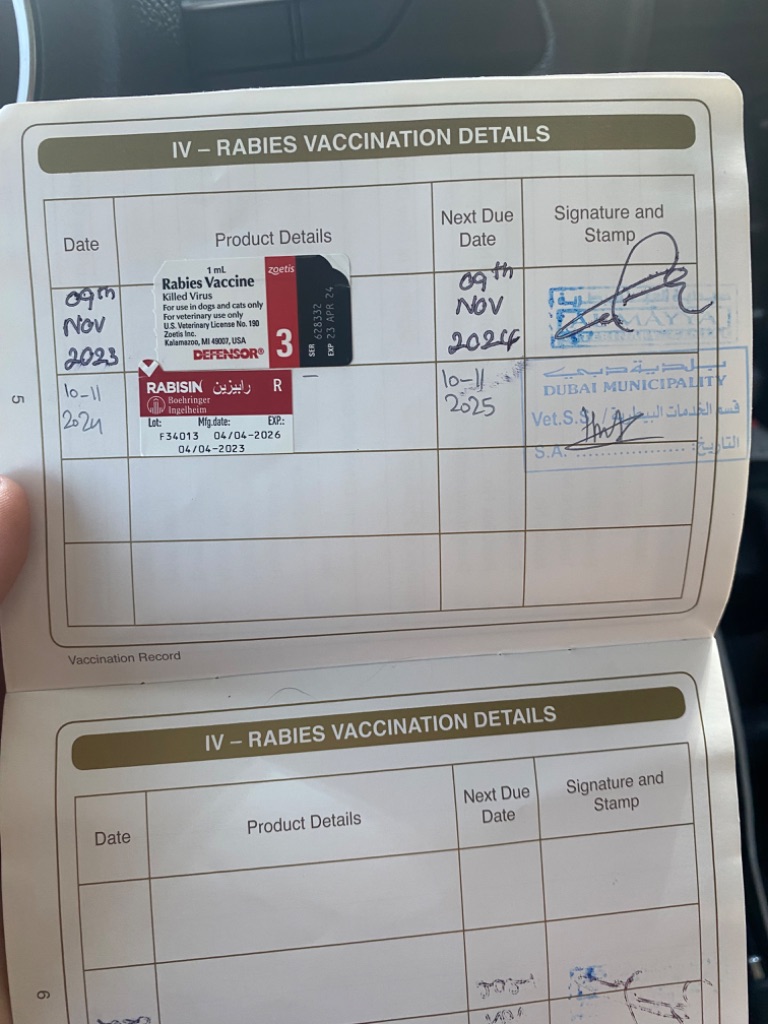 IV – RABIES VACCINATION DETAILS
Date
Product Details
Next Due
Date
Signature and
Stamp
09th
Nov
2023
1 mL
Rabies Vaccine
Killed Virus
For use in dogs and cats only
For veterinary use only
U.S. Veterinary License No. 190
Zoetis Inc.
Kalamazoo, MI 49007, USA
DEFENSOR®
zoetis
3
SER 628332
EXP 23 APR 24
09th
Nov
2024
10-11
2024
RABISIN رابيزين R
Boehringer
Ingelheim
Lot: Mfg.date: EXP.:
F34013 04/04-2026
04/04-2023
10-11
2025
بلدية دبي
DUBAI MUNICIPALITY
Vet.S.S / قسم الخدمات البيطرية
S.A. التاريخ:
5
Vaccination Record
IV – RABIES VACCINATION DETAILS
Date
Product Details
Next Due
Date
Signature and
Stamp
6